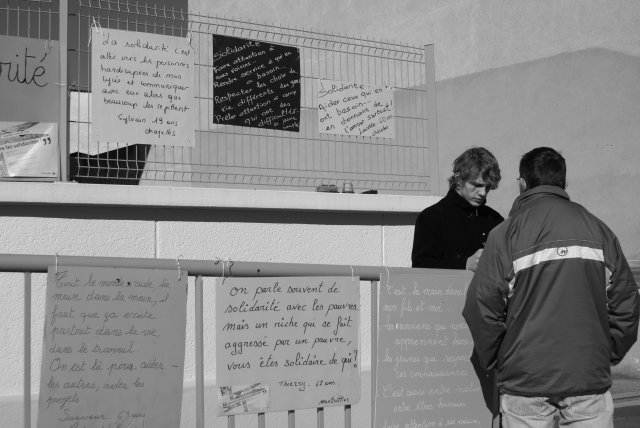 rité
La solidarité c'est
aller vers les personnes
handicapées de mon
lycée et communiquer
avec eux alors que
beaucoup les rejettent
Sylvain 19 ans
Solidarité
Faire attention à
Rendre service à qui en
a besoin...
Respecter les choix de
vie différents des gens
Prêter attention à ceux
qui ont des
difficultés.
Solidarité:
Aider ceux qui en
ont besoin...
en donnant de
l'amour surtout!
Tout le monde s'aide, la
main dans la main, il
faut que ça existe
partout dans la vie,
dans le travail.
On est là pour aider
les autres, aider les
projets
Sauveur 63 ans
On parle souvent de
solidarité avec les pauvres
mais un riche qui se fait
aggressé par un pauvre,
vous êtes solidaire de qui?
Thierry. 12 ans
la main dans
mon fils et moi
les anciens qui
apprennent
la jeunes qui
ces connaissances
C'est aussi entre
entre être humain
attention à ses